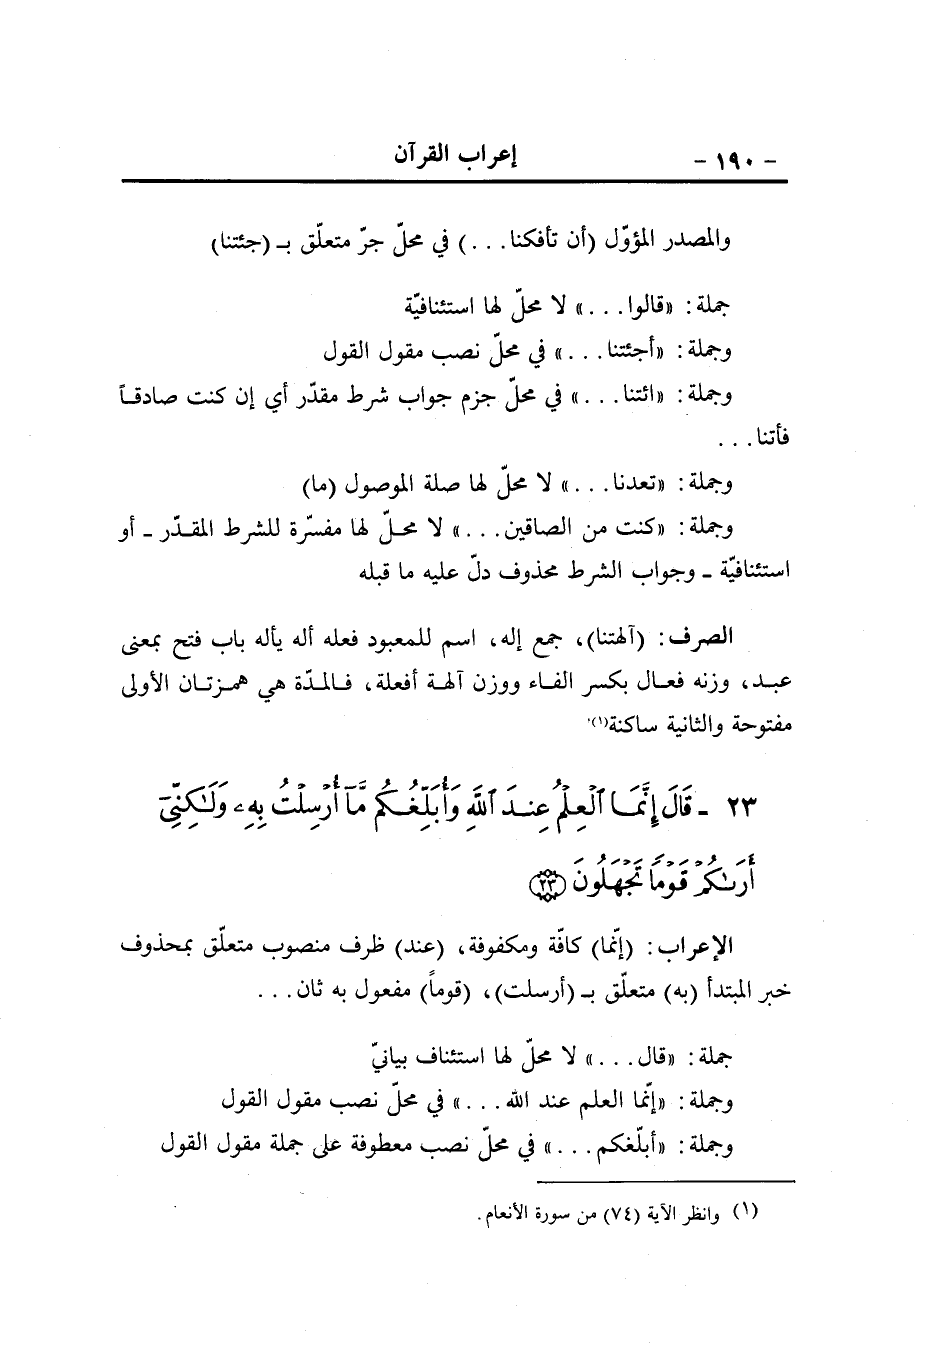 - ١٩٠ - إعراب القرآن
والمصدر المؤوّل (أن تأفكنا. . .) في محلّ جرّ متعلّق بـ (جئتنا)
جملة: «قالوا. . .» لا محلّ لها استئنافيّة
وجملة: «أجئتنا. . .» في محلّ نصب مقول القول
وجملة: «ائتنا. . .» في محلّ جزم جواب شرط مقدّر أي إن كنت صادقاً
فأتنا. . .
وجملة: «تعدنا. . .» لا محلّ لها صلة الموصول (ما)
وجملة: «كنت من الصاقين. . .» لا محلّ لها مفسّرة للشرط المقدّر ـ أو
استئنافيّة ـ وجواب الشرط محذوف دلّ عليه ما قبله
الصرف: (آلهتنا)، جمع إله، اسم للمعبود فعله أله يأله باب فتح بمعنى
عبد، وزنه فعال بكسر الفاء ووزن آلهة أفعلة، فالمدّة هي همزتان الأولى
مفتوحة والثانية ساكنة(١).
٢٣ ـ قَالَ إِنَّمَا ٱلْعِلْمُ عِندَ ٱللَّهِ وَأُبَلِّغُكُم مَّآ أُرْسِلْتُ بِهِۦ وَلَـٰكِنِّىٓ
أَرَىٰكُمْ قَوْمًا تَجْهَلُونَ ﴿٢٣﴾
الإعراب: (إنّما) كافّة ومكفوفة، (عند) ظرف منصوب متعلّق بمحذوف
خبر المبتدأ (به) متعلّق بـ (أرسلت)، (قوماً) مفعول به ثان. . .
جملة: «قال. . .» لا محلّ لها استئناف بيانيّ
وجملة: «إنّما العلم عند الله. . .» في محلّ نصب مقول القول
وجملة: «أبلّغكم. . .» في محلّ نصب معطوفة على جملة مقول القول
(١) وانظر الآية (٧٤) من سورة الأنعام.